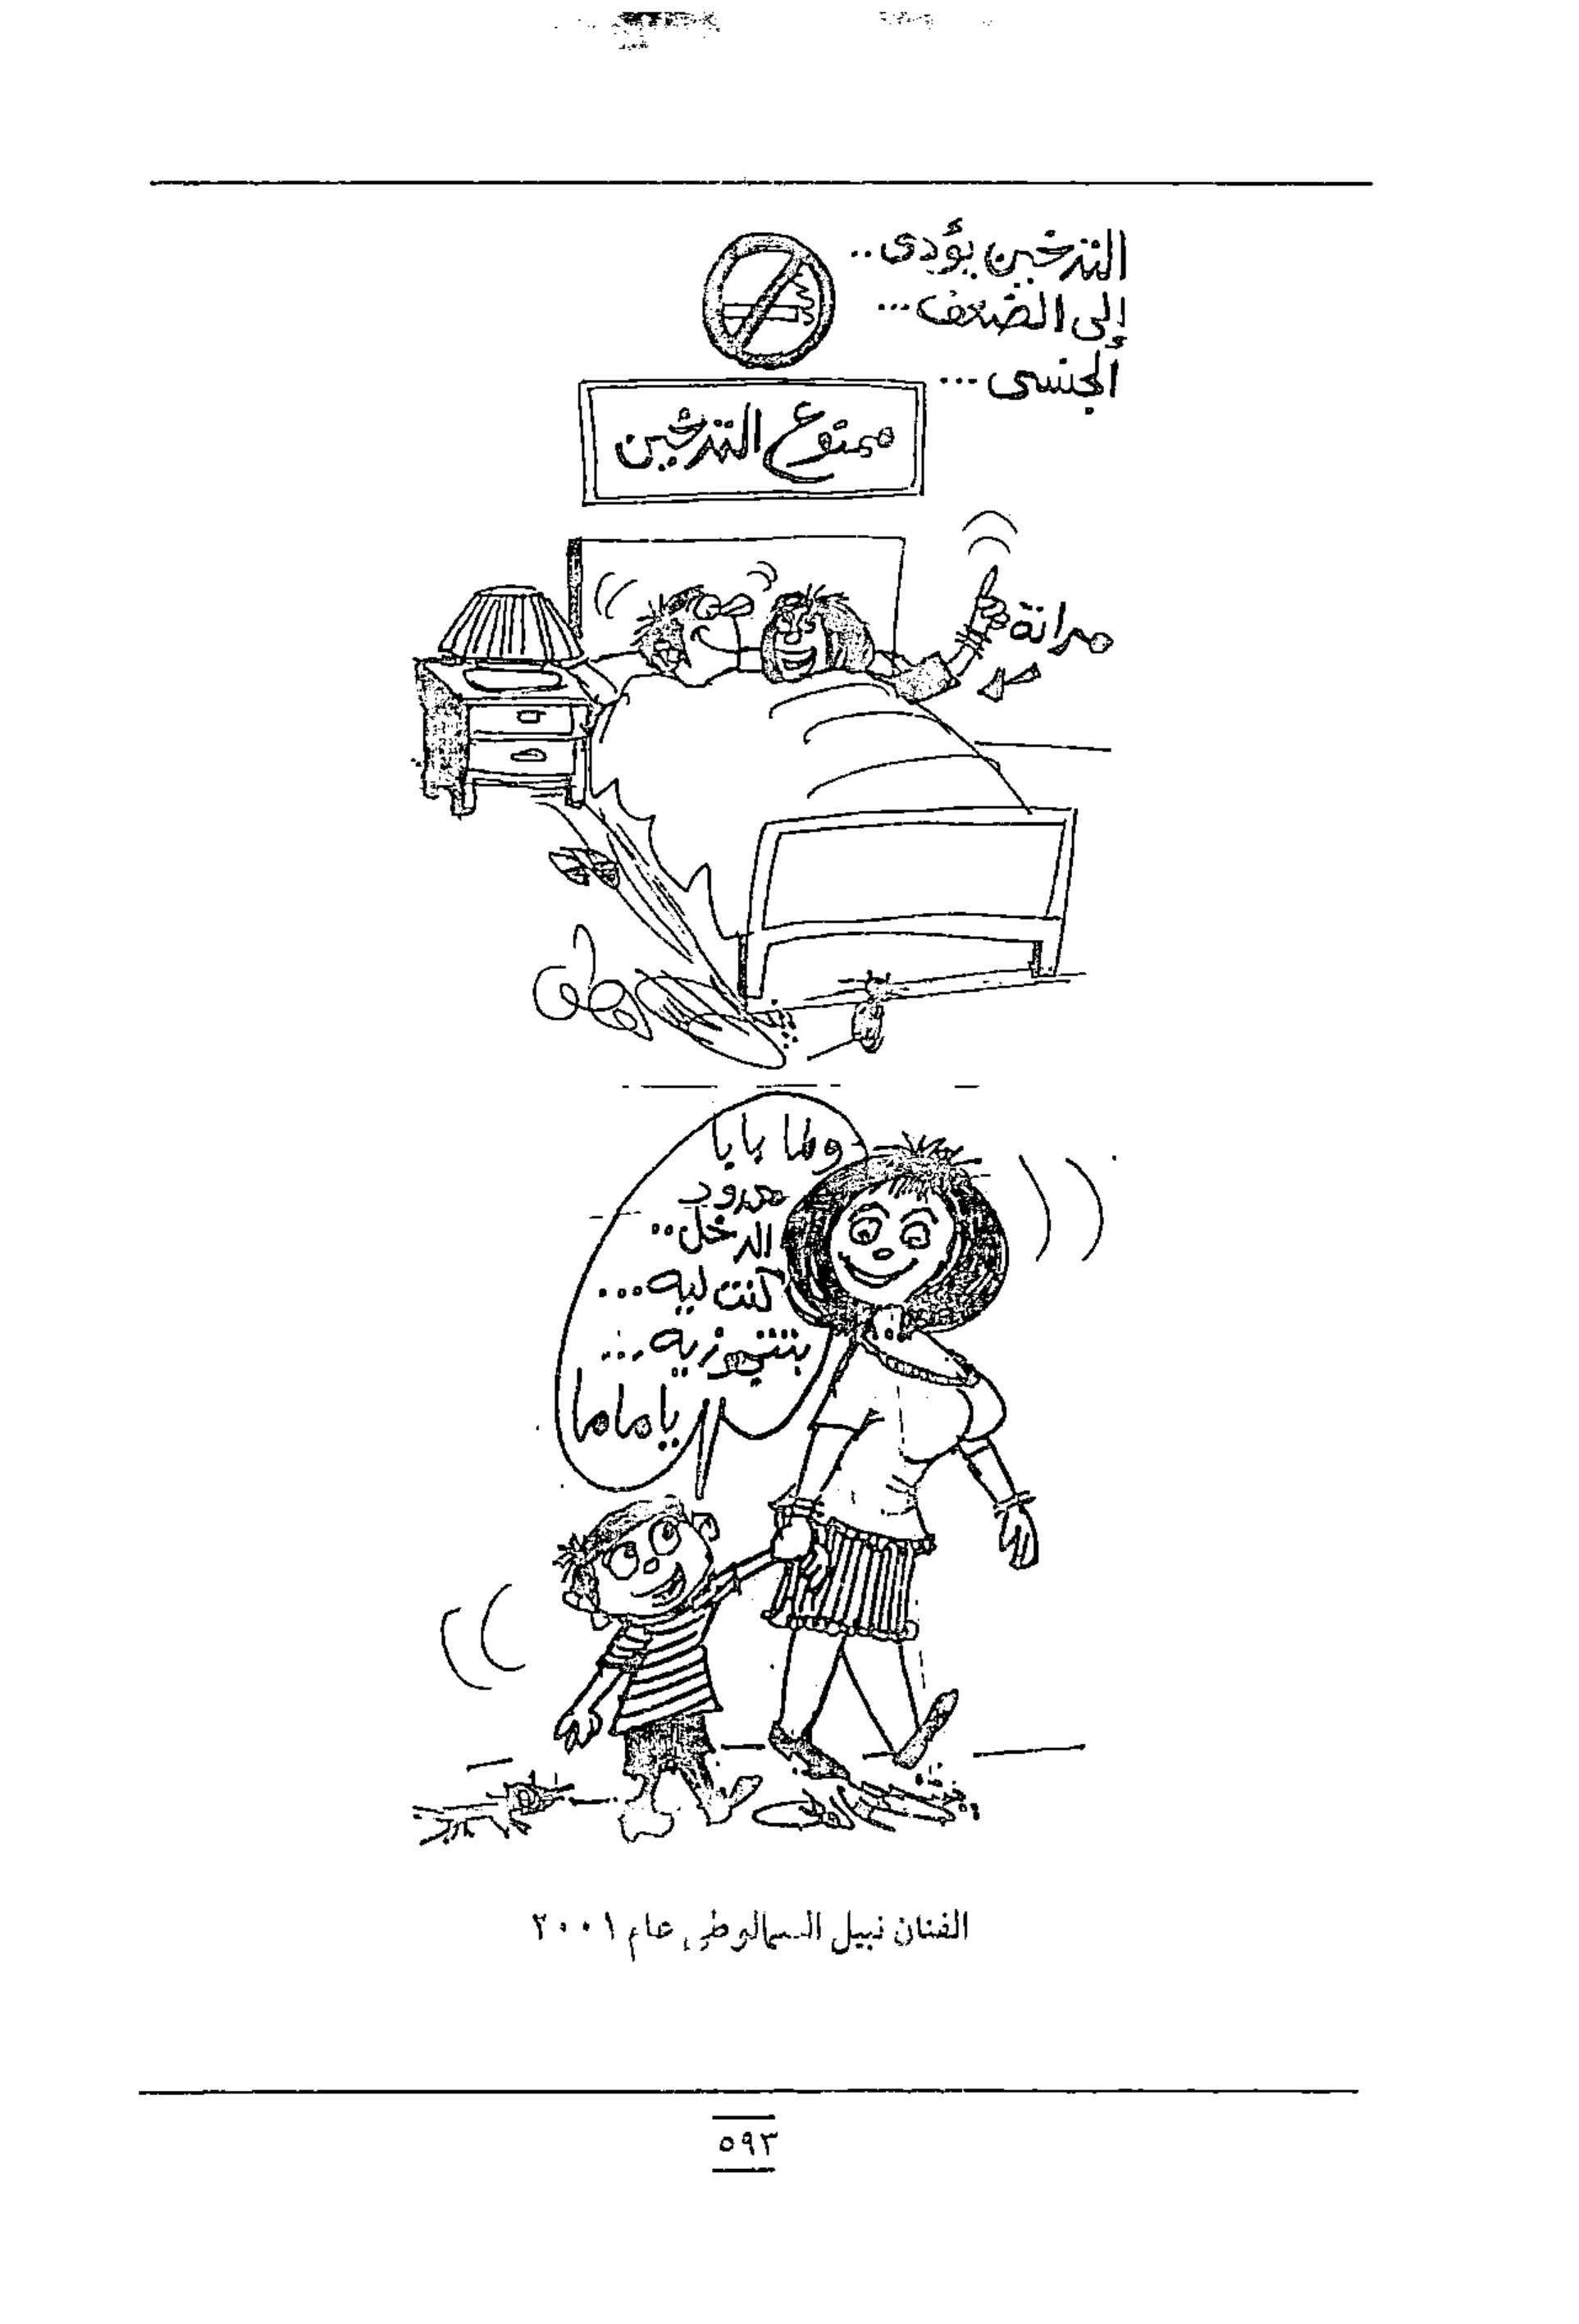 التدخين يؤدى..
إلى الضعف...
الجنسى...
ممنوع التدخين
مراتة
ولما بابا
محدود
الدخل..
كنت ليه...
بتتجوزيه...
يا ماما
الفنان نبيل السمالوطى عام ٢٠٠١
٥٩٣